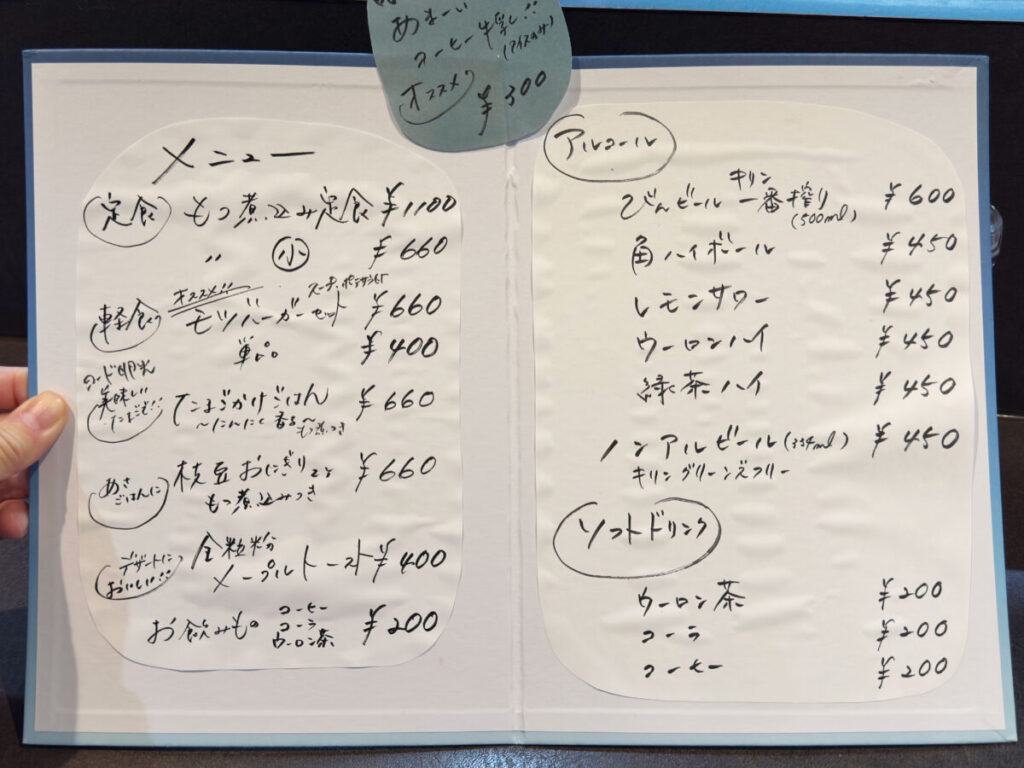 あまーい
コーヒー牛乳!!
(アイスのみ)
オススメ
¥300
メニュー
定食 もつ煮込み定食 ¥1100
〃 小 ¥660
軽食 オススメ!! モツバーガーセット ¥660
単品 ¥400
ヨード卵光
美味しい
たまごかけごはん ¥660
〜にんにく香る〜
もつ煮つき
あさごはんに 枝豆おにぎり2こ ¥660
もつ煮込みつき
デザートに
おいしい!! 全粒粉
メープルトースト ¥400
お飲みもの コーヒー
コーラ
ウーロン茶 ¥200
アルコール
びんビール キリン一番搾り ¥600
(500ml)
角ハイボール ¥450
レモンサワー ¥450
ウーロンハイ ¥450
緑茶ハイ ¥450
ノンアルビール(334ml) ¥450
キリングリーンズフリー
ソフトドリンク
ウーロン茶 ¥200
コーラ ¥200
コーヒー ¥200